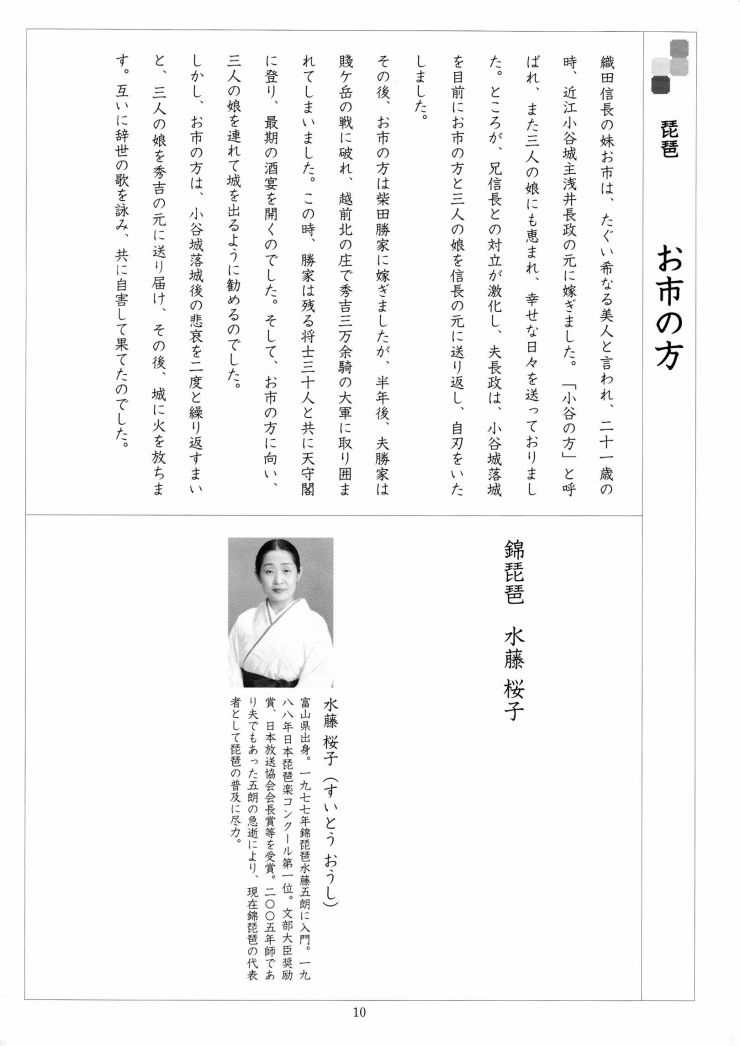 琵琶　お市の方
織田信長の妹お市は、たぐい希なる美人と言われ、二十一歳の
時、近江小谷城主浅井長政の元に嫁ぎました。「小谷の方」と呼
ばれ、また三人の娘にも恵まれ、幸せな日々を送っておりまし
た。ところが、兄信長との対立が激化し、夫長政は、小谷城落城
を目前にお市の方と三人の娘を信長の元に送り返し、自刃をいた
しました。
その後、お市の方は柴田勝家に嫁ぎましたが、半年後、夫勝家は
賤ケ岳の戦に破れ、越前北の庄で秀吉三万余騎の大軍に取り囲ま
れてしまいました。この時、勝家は残る将士三十人と共に天守閣
に登り、最期の酒宴を開くのでした。そして、お市の方に向い、
三人の娘を連れて城を出るように勧めるのでした。
しかし、お市の方は、小谷城落城後の悲哀を二度と繰り返すまい
と、三人の娘を秀吉の元に送り届け、その後、城に火を放ちま
す。互いに辞世の歌を詠み、共に自害して果てたのでした。
錦琵琶　水藤 桜子
水藤 桜子（すいとう おうし）
富山県出身。一九七七年錦琵琶水藤五朗に入門。一九
八八年日本琵琶楽コンクール第一位。文部大臣奨励
賞、日本放送協会会長賞等を受賞。二〇〇五年師であ
り夫でもあった五朗の急逝により、現在錦琵琶の代表
者として琵琶の普及に尽力。
10